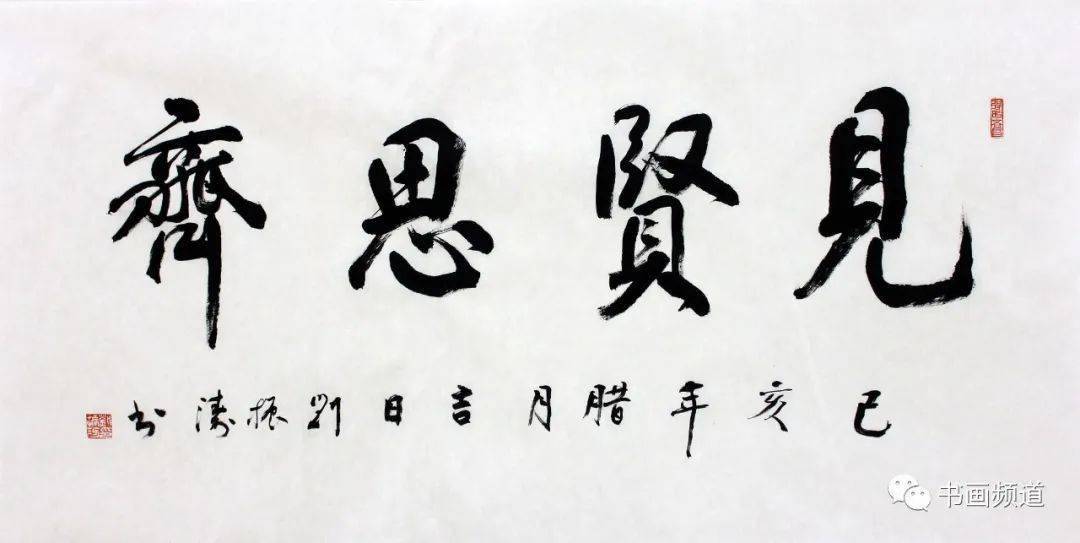 見賢思齊
己亥年腊月吉日劉振濤书
书画频道